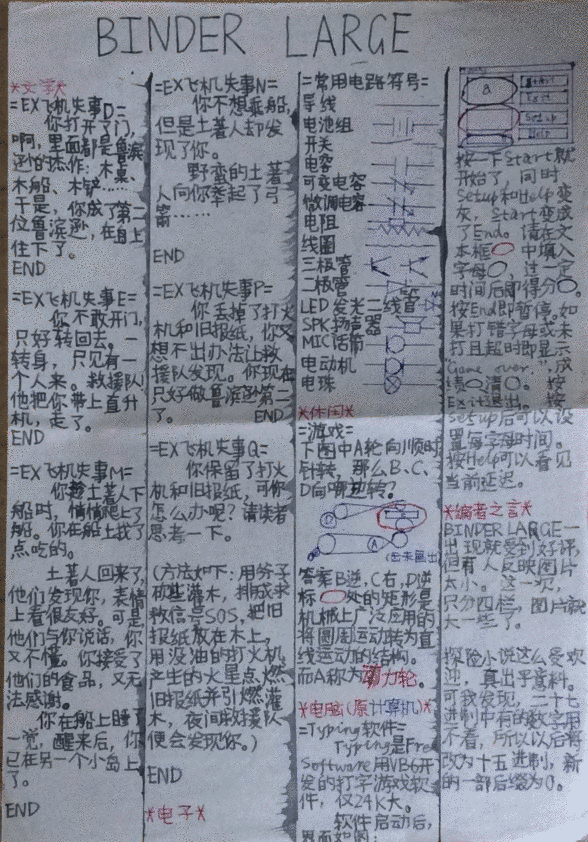 BINDER LARGE
*文学*
=EX飞机失事D=
你打开了门,
啊,里面都是鲁滨
逊的杰作:木桌、
木船、木铲……
于是,你成了第二
位鲁滨逊,在岛上
住下了。
END
=EX飞机失事E=
你不敢开门,
只好转回去。一
转身,只见有一
个人来。救援队!
他把你带上直升
机,走了。
END
=EX飞机失事M=
你趁土著人下
船时,悄悄爬上了
船。你在船上找了
点吃的。
土著人回来了,
他们发现你,表情
上看很友好。可是
他们与你说话,你
又不懂。你接受了
他们的食品,又无
法感谢。
你在船上睡了
一觉,醒来后,你
已在另一个小岛上
了。
END
=EX飞机失事N=
你不想乘船,
但是土著人却发
现了你。
野蛮的土著
人向你拳起了弓
箭……
END
=EX飞机失事P=
你丢掉了打火
机和旧报纸,你又
想不出办法让救
援队发现。你现在
只好做鲁滨逊第二
了。 END
=EX飞机失事Q=
你保留了打火
机和旧报纸,可你
怎么办呢?请读者
思考一下。
(方法如下:用斧子
砍些灌木,排成求
救信号SOS,把旧
报纸放在木上,
用没油的打火机
产生的火星点燃
旧报纸并引燃灌
木,夜间救援队
便会发现你。)
END
*电子*
=常用电路符号=
导线
电池组
开关
电容
可变电容
微调电容
电阻
线圈
三极管
二极管
LED发光二极管
SPK扬声器
MIC话筒
电动机
电珠
*休闲*
=游戏=
下图中A轮向顺时
针转,那么B、C、
D向哪边转?
D
A
答案B逆,C右,D逆
标 处的矩形是
机械上广泛应用的
将圆周运动转为直
线运动的结构。
而A称为动力轮。
*电脑(原计算机)*
=Typing软件=
Typing是Free
Software用VB6开
发的打字游戏软
件,仅24K大。
软件启动后,
界面如图:
A
Start
Setup
Help
按一下Start就
开始了,同时
Setup和Help变
灰,Start变成
了End。请在文
本框 中填入
字母 ,过一定
时间后即得分 。
按End即暂停。如
果打错字母或未
打且超时即显示
"Game over.",成
绩 清 。按
Exit退出。按
Setup后可以设
置每字母时间。
按Help可以看见
当前延迟。
*编者之言*
BINDER LARGE一
出现就受到好评,
但有人反映图片
太小。这一次,
只分四栏,图片就
大一些了。
探险小说这么受欢
迎,真出乎意料。
可我发现,二十七
进制中有的数字用
不着,所以以后将
改为十五进制,新
的一部后缀为0。